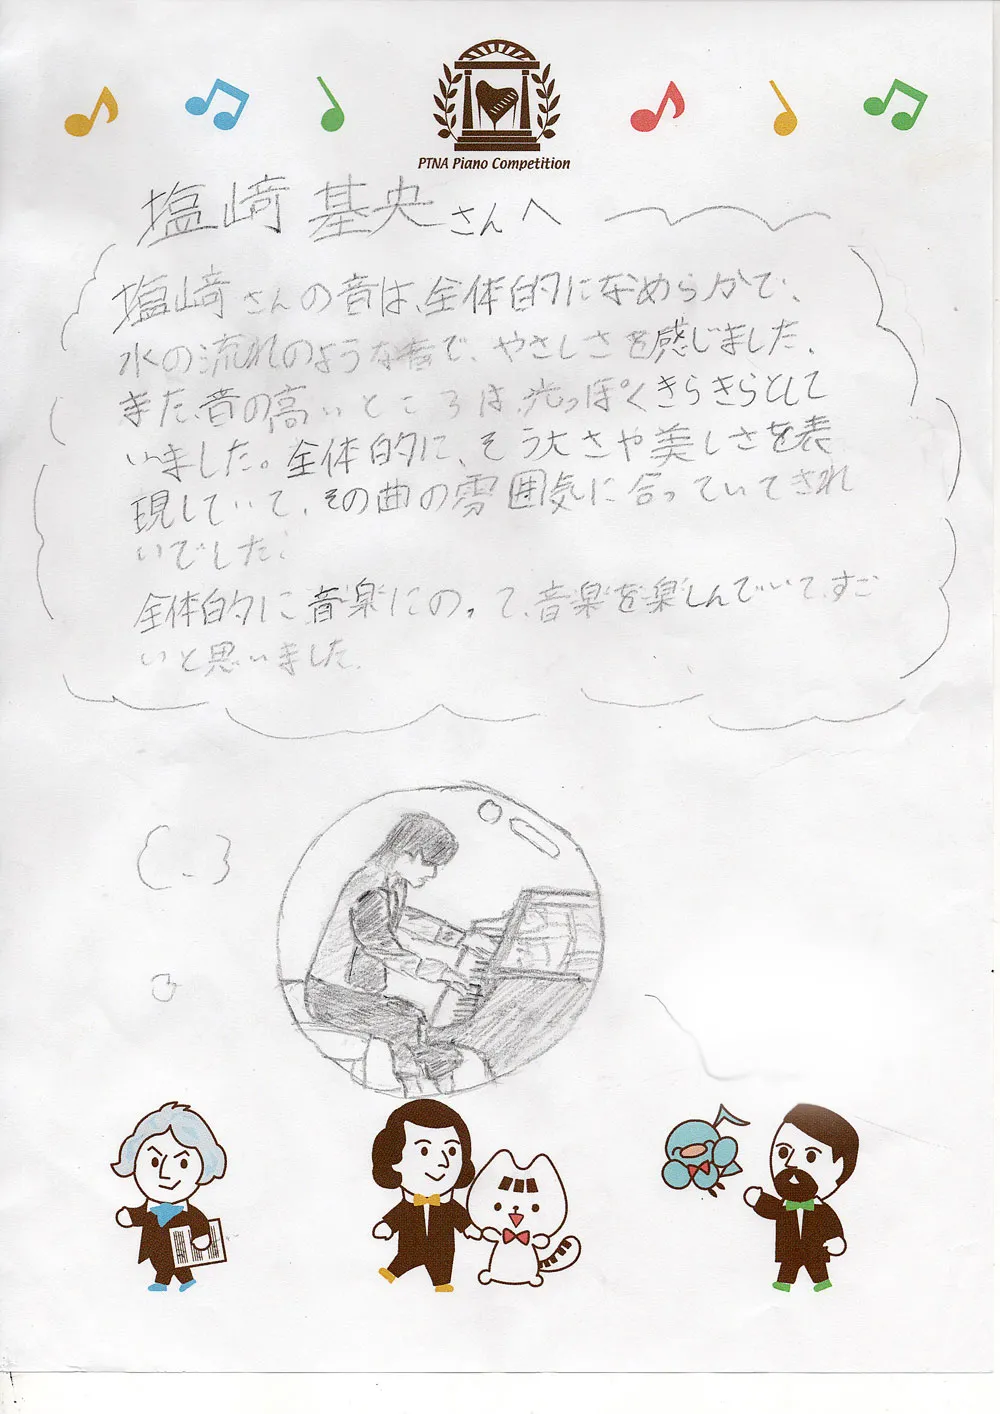 PTNA Piano Competition
塩﨑 基央さんへ
塩﨑さんの音は、全体的になめらかで、
水の流れのような音で、やさしさを感じました。
また、音の高いところは、光っぽくきらきらとして
いました。全体的に、そう大さや美しさを表
現していて、その曲の雰囲気に合っていてきれ
いでした。
全体的に音楽にのって、音楽を楽しんでいて、すご
いと思いました。